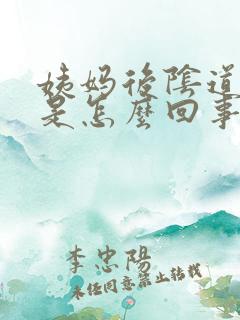 姨妈後陰道
是怎麼回事
李忠陽
未经同意禁止转载